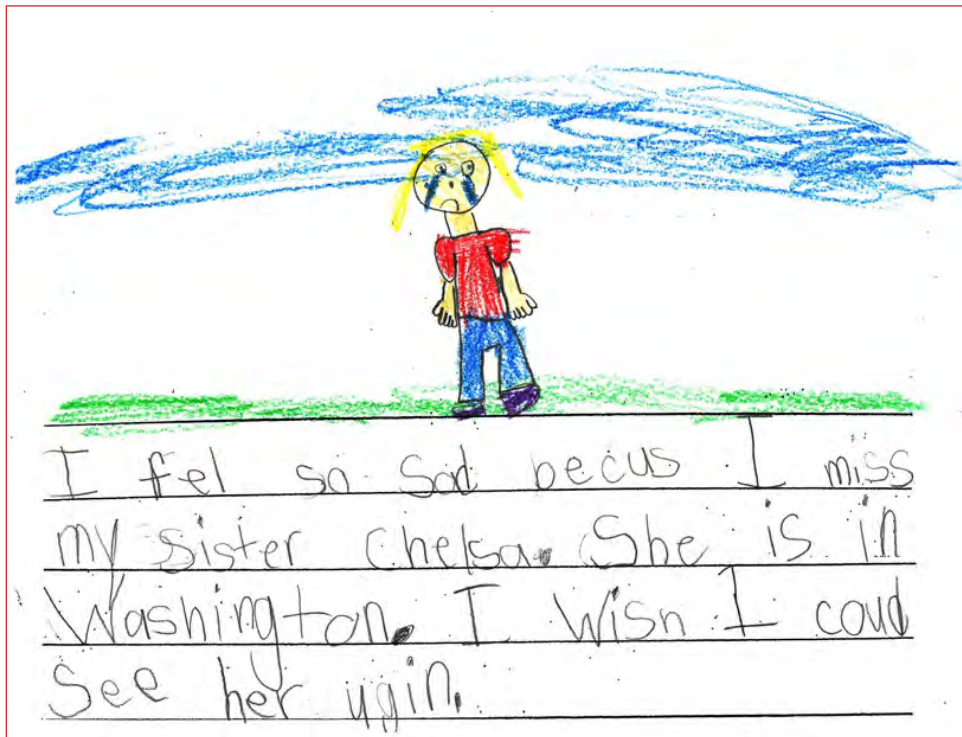 I fel so sad becus I miss
my sister Chelsa. She is in
Washington. I wish I coud
see her ugin.